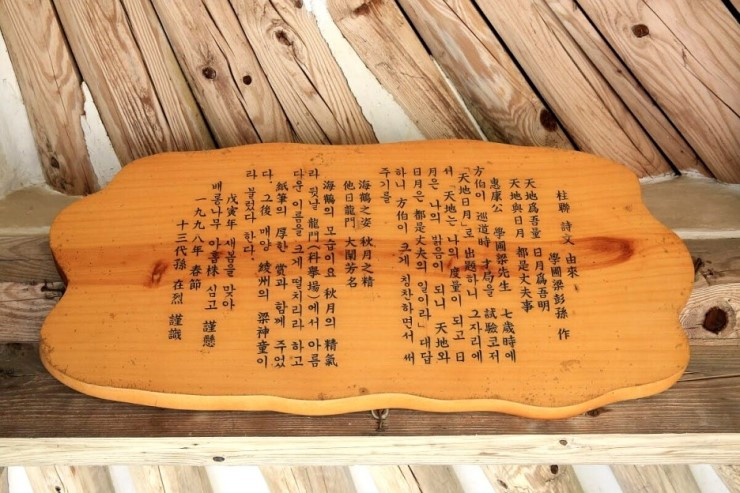 柱聯 詩文 由來
學圃梁彭孫 作
天地爲吾量 日月爲吾明
天地與日月 都是丈夫事
惠康公 學圃梁先生 七歲時에
方伯이 巡道時 才局을 試驗코저
「天地日月」로 出題하니 그자리에
서 「天地는 나의 度量이 되고 日
月은 나의 밝음이 되니 天地와
日月은 都是丈夫의 일이라」 대답
하니 方伯이 크게 칭찬하면서 써
주기를
海鶴之姿 秋月之精
他日龍門 大闡芳名
海鶴의 모습이요 秋月의 精氣
라 뒷날 龍門(科擧場)에서 아름
다운 이름을 크게 떨치리라 하고
紙筆의 厚한 賞과 함께 주었
다 그後 매양 綾州의 梁神童이
라 불렀다 한다.
戊寅年 새봄을 맞아
배롱나무 아홉株 심고 謹懸
一九九八年 春節
十三代孫 在烈 謹識